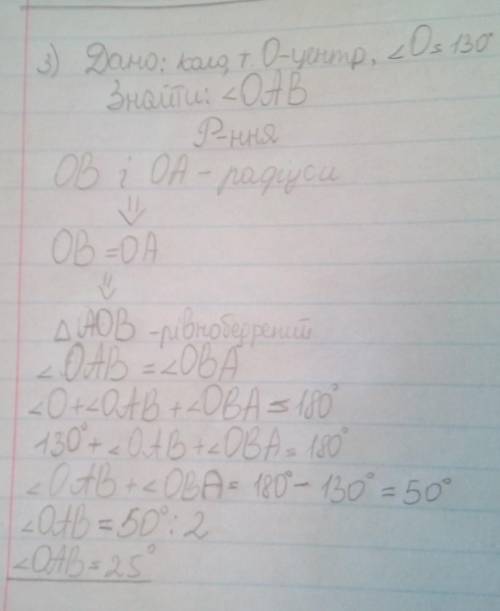 3) Дано: кола, т. О-центр, ∠O = 130°
Знайти: ∠OAB
Р-ння
OB і OA - радіуси
⇓
OB = OA
⇓
△AOB - рівнобедрений
∠OAB = ∠OBA
∠O + ∠OAB + ∠OBA = 180°
130° + ∠OAB + ∠OBA = 180°
∠OAB + ∠OBA = 180° - 130° = 50°
∠OAB = 50° : 2
∠OAB = 25°